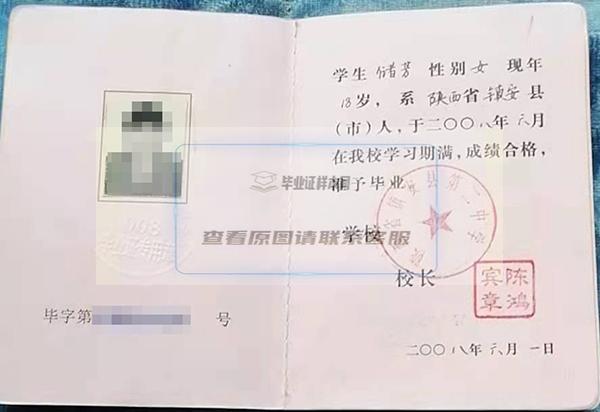 学生 储芳 性别 女 现年
18岁，系 陕西省 镇安 县
（市）人，于二〇〇八年六月
在我校学习期满，成绩合格，
准予毕业
毕业证样本网
查看原图请联系客服
学校
校长
陈鸿宾章
毕字第 号
二〇〇八年六月一日